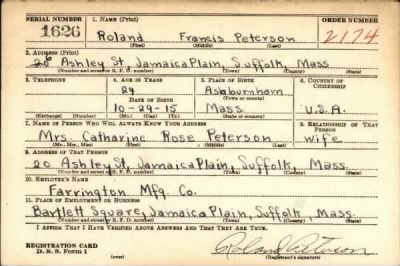 SERIAL NUMBER 1. NAME (Print) ORDER NUMBER
1626 Roland Francis Peterson 2174
(First) (Middle) (Last)
2. ADDRESS (Print)
20 Ashley St, Jamaica Plain, Suffolk, Mass
(Number and street or R. F. D. number) (Town) (County) (State)
3. TELEPHONE 4. AGE IN YEARS 5. PLACE OF BIRTH 6. COUNTRY OF CITIZENSHIP
24 Ashburnham
(Town or county)
DATE OF BIRTH
10-29-15 Mass. U.S.A.
(Exchange) (Number) (Mo.) (Day) (Yr.) (State or country)
7. NAME OF PERSON WHO WILL ALWAYS KNOW YOUR ADDRESS 8. RELATIONSHIP OF THAT PERSON
Mrs. Catharine Rose Peterson wife
(Mr., Mrs., Miss) (First) (Middle) (Last)
9. ADDRESS OF THAT PERSON
20 Ashley St, Jamaica Plain, Suffolk, Mass.
(Number and street or R. F. D. number) (Town) (County) (State)
10. EMPLOYER'S NAME
Farrington Mfg. Co.
11. PLACE OF EMPLOYMENT OR BUSINESS
Bartlett Square, Jamaica Plain, Suffolk, Mass.
(Number and street or R. F. D. number) (Town) (County) (State)
I AFFIRM THAT I HAVE VERIFIED ABOVE ANSWERS AND THAT THEY ARE TRUE.
REGISTRATION CARD
D. S. S. Form 1 Roland Peterson
(Registrant's signature)